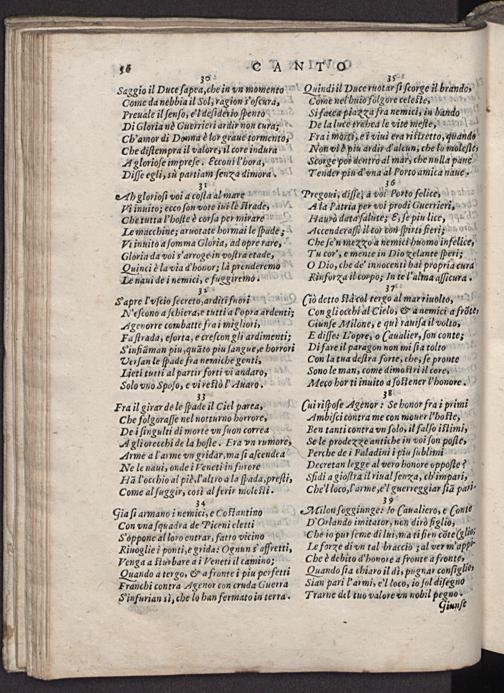 56
CANTO
30
Saggio il Duce sapea, che in vn momento
Come da nebbia il Sol, ragion s'oscura,
Preuale il senso, e'l desiderio spento
Di Gloria nè Guerrieri ardir non cura;
Ch'amor di Donna è lor graue tormento,
Che distempra il valore, il core indura
A gloriose imprese. Eccoui l'hora,
Disse egli, sù partiam senza dimora.
31
Ah gloriosi voi a costa al mare
Vi inuito; ecco son vote iui le strade,
Che tutta l'hoste è corsa per mirare
Le macchine; aruotate hormai le spade;
Vi inuito a somma Gloria, ad opre rare,
Gloria da voi s'arroge in vostra etade,
Quinci è la via d'honor; là prenderemo
Le naui de i nemici, e fuggiremo.
32
S'apre l'vscio secreto, ardiri fuori
N'esono a schiera, e tutti a l'opra ardenti;
Agenorre combatte fra i migliori,
Fa strada, eforta, e crescon gli ardimenti;
S'infiāman piu, quāto piu sangue, e horrori
Versan le spade fra nemiche genti.
Lieti tutti al partir forti vi andaro,
Solo vno Sposo, e vi restò l'Auaro.
33
Fra il girar de le spade il Ciel parea,
Che folgorasse nel notturno horrore,
De i singulti di morte vn suon correa
A gli orecchi de la hoste. Era vn rumore,
Arme a l'arme vn gridar, ma si ascendea
Ne le naui, onde i Veneti in furore
Hā l'occhio al piè, l'altro a la spada, presti,
Come al fuggir, così al ferir molesti.
34
Già si armano i nemici, e Costantino
Con vna squadra de Piceni eletti
S'oppone al loro entrar, fatto vicino
Riuoglie i ponti, e grida: Ognun s'affretti,
Venga a sturbare a i Veneti il camino;
Quando a tergo, & a fronte i piu perfetti
Franchi contra Agenor con cruda Guerra
S'infurian sì, che lo han fermato in terra.
35
Quindi il Duce ruotar si scorge il brando,
Come nel buio folgore celeste,
Si fa tea piazza fra nemici, in bando
De la luce trahea le vite meste,
Fra i morti, e i viui era ristretto, quando
Non vi è piu ardir d'alcun, che lo moleste,
Scorge poi dentro al mar, che nulla paue
Tender piu d'vna al Porto amica naue.
36
Pregoui, disse, a voi Porto felice,
A la Patria per voi prodi Guerrieri,
Haurò data salute; E, se piu lice,
Accenderassi il cor con spirti fieri;
Che se'n mezzo a nemici huomo infelice,
Tu cor', e mente in Dio zelante speri;
O Dio, che de' innocenti hai propria cura
Rinforza il corpo; In te l'alma assicura.
37
Ciò detto stà col tergo al mar riuolto,
Con gli occhi al Cielo, & a nemici a frōte;
Giunse Milone, e quì rauisa il volto,
E disse: L'opre, o Caualier, son conte;
Di fare il paragon non mi sia tolto
Con la tua destra forte, che, se pronte
Sono le man, come dimostri il core,
Meco hor ti inuito a sostener l'honore.
38
Cui rispose Agenor: Se honor fra i primi
Ambisci contra me con mouer l'hoste,
Ben tanti contra vn solo, il falso istimi,
Se le prodezze antiche in voi son poste,
Perche de i Paladini i piu sublimi
Decretan legge al vero honore opposte?
Sfidi a giostra il riual senza, ch'impari,
Che'l loco, l'arme, e'l guerreggiar sia pari.
39
Milon soggiunge: Io Caualiero, e Conte
D'Orlando imitator, non dirò figlio,
Che io pur seme di lui, ma ti sien cōte
Le forze di vn tal braccio; al ver m'appi
Che è debito d'honore a fronte a fronte,
Quando sia chiaro il dì, pugnar consiglio;
Sian pari l'armi, e'l loco, io sol disegno
Trarne del tuo valore vn nobil pegno.
Giunse